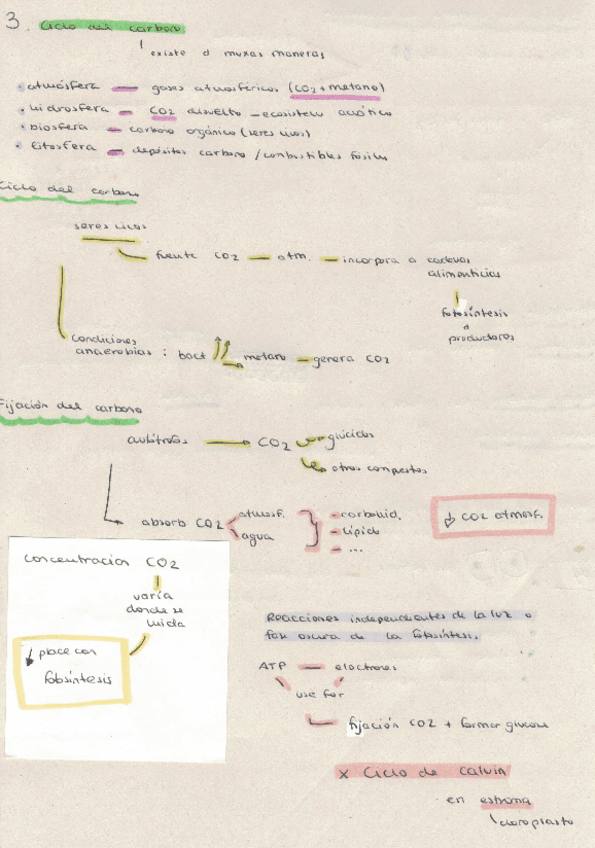 3. Ciclo del carbono
existe d muxas maneras
• atmósfera — gases atmosféricos (CO2 + metano)
• hidrosfera — CO2 disuelto — ecosistem acuático
• biosfera — carbono orgánico (seres vivos)
• litosfera — depósitos carbono / combustibles fósiles
Ciclo del carbono
seres vivos
fuente CO2 — atm. — incorpora a cadenas
alimenticias
fotosíntesis
productores
condiciones
anaerobias : bact metano — genera CO2
Fijación del carbono
autótrofos → CO2 glúcidos
otros compuestos
absorb CO2 atmosf. - carbohid. ↓ CO2 atmosf.
agua - lípido
- ...
concentracion CO2
varía
donde se
mida
↓ place con
fotosíntesis
Reacciones independientes de la luz o
fase oscura de la fotosíntesis.
ATP — electrones
use for
fijación CO2 + formar glucosa
x Ciclo de Calvin
en estroma
cloroplasto